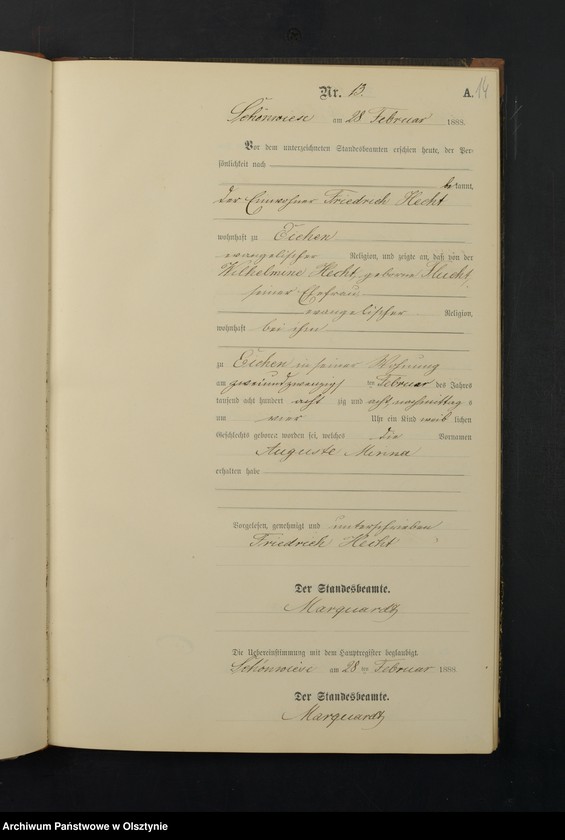 Nr. 13. A. 14
Schönwiese am 28 Februar 1888.
Vor dem unterzeichneten Standesbeamten erschien heute, der Per-
sönlichkeit nach
bekannt,
der Einwohner Friedrich Hecht
wohnhaft zu Eichen
evangelischer Religion, und zeigte an, daß von der
Wilhelmine Hecht, geborne
seiner Ehefrau
evangelischer Religion,
wohnhaft bei ihm
zu Eichen in seiner Wohnung
am zweiundzwanzig ten Februar des Jahres
tausend acht hundert acht zig und acht nachmittags
um vier Uhr ein Kind weib lichen
Geschlechts geboren worden sei, welches die Vornamen
Auguste Minna
erhalten habe
Vorgelesen, genehmigt und unterschrieben
Friedrich Hecht
Der Standesbeamte.
Marquardt
Die Uebereinstimmung mit dem Hauptregister beglaubigt.
Schönwiese am 28 ten Februar 1888.
Der Standesbeamte.
Marquardt
Archiwum Państwowe w Olsztynie